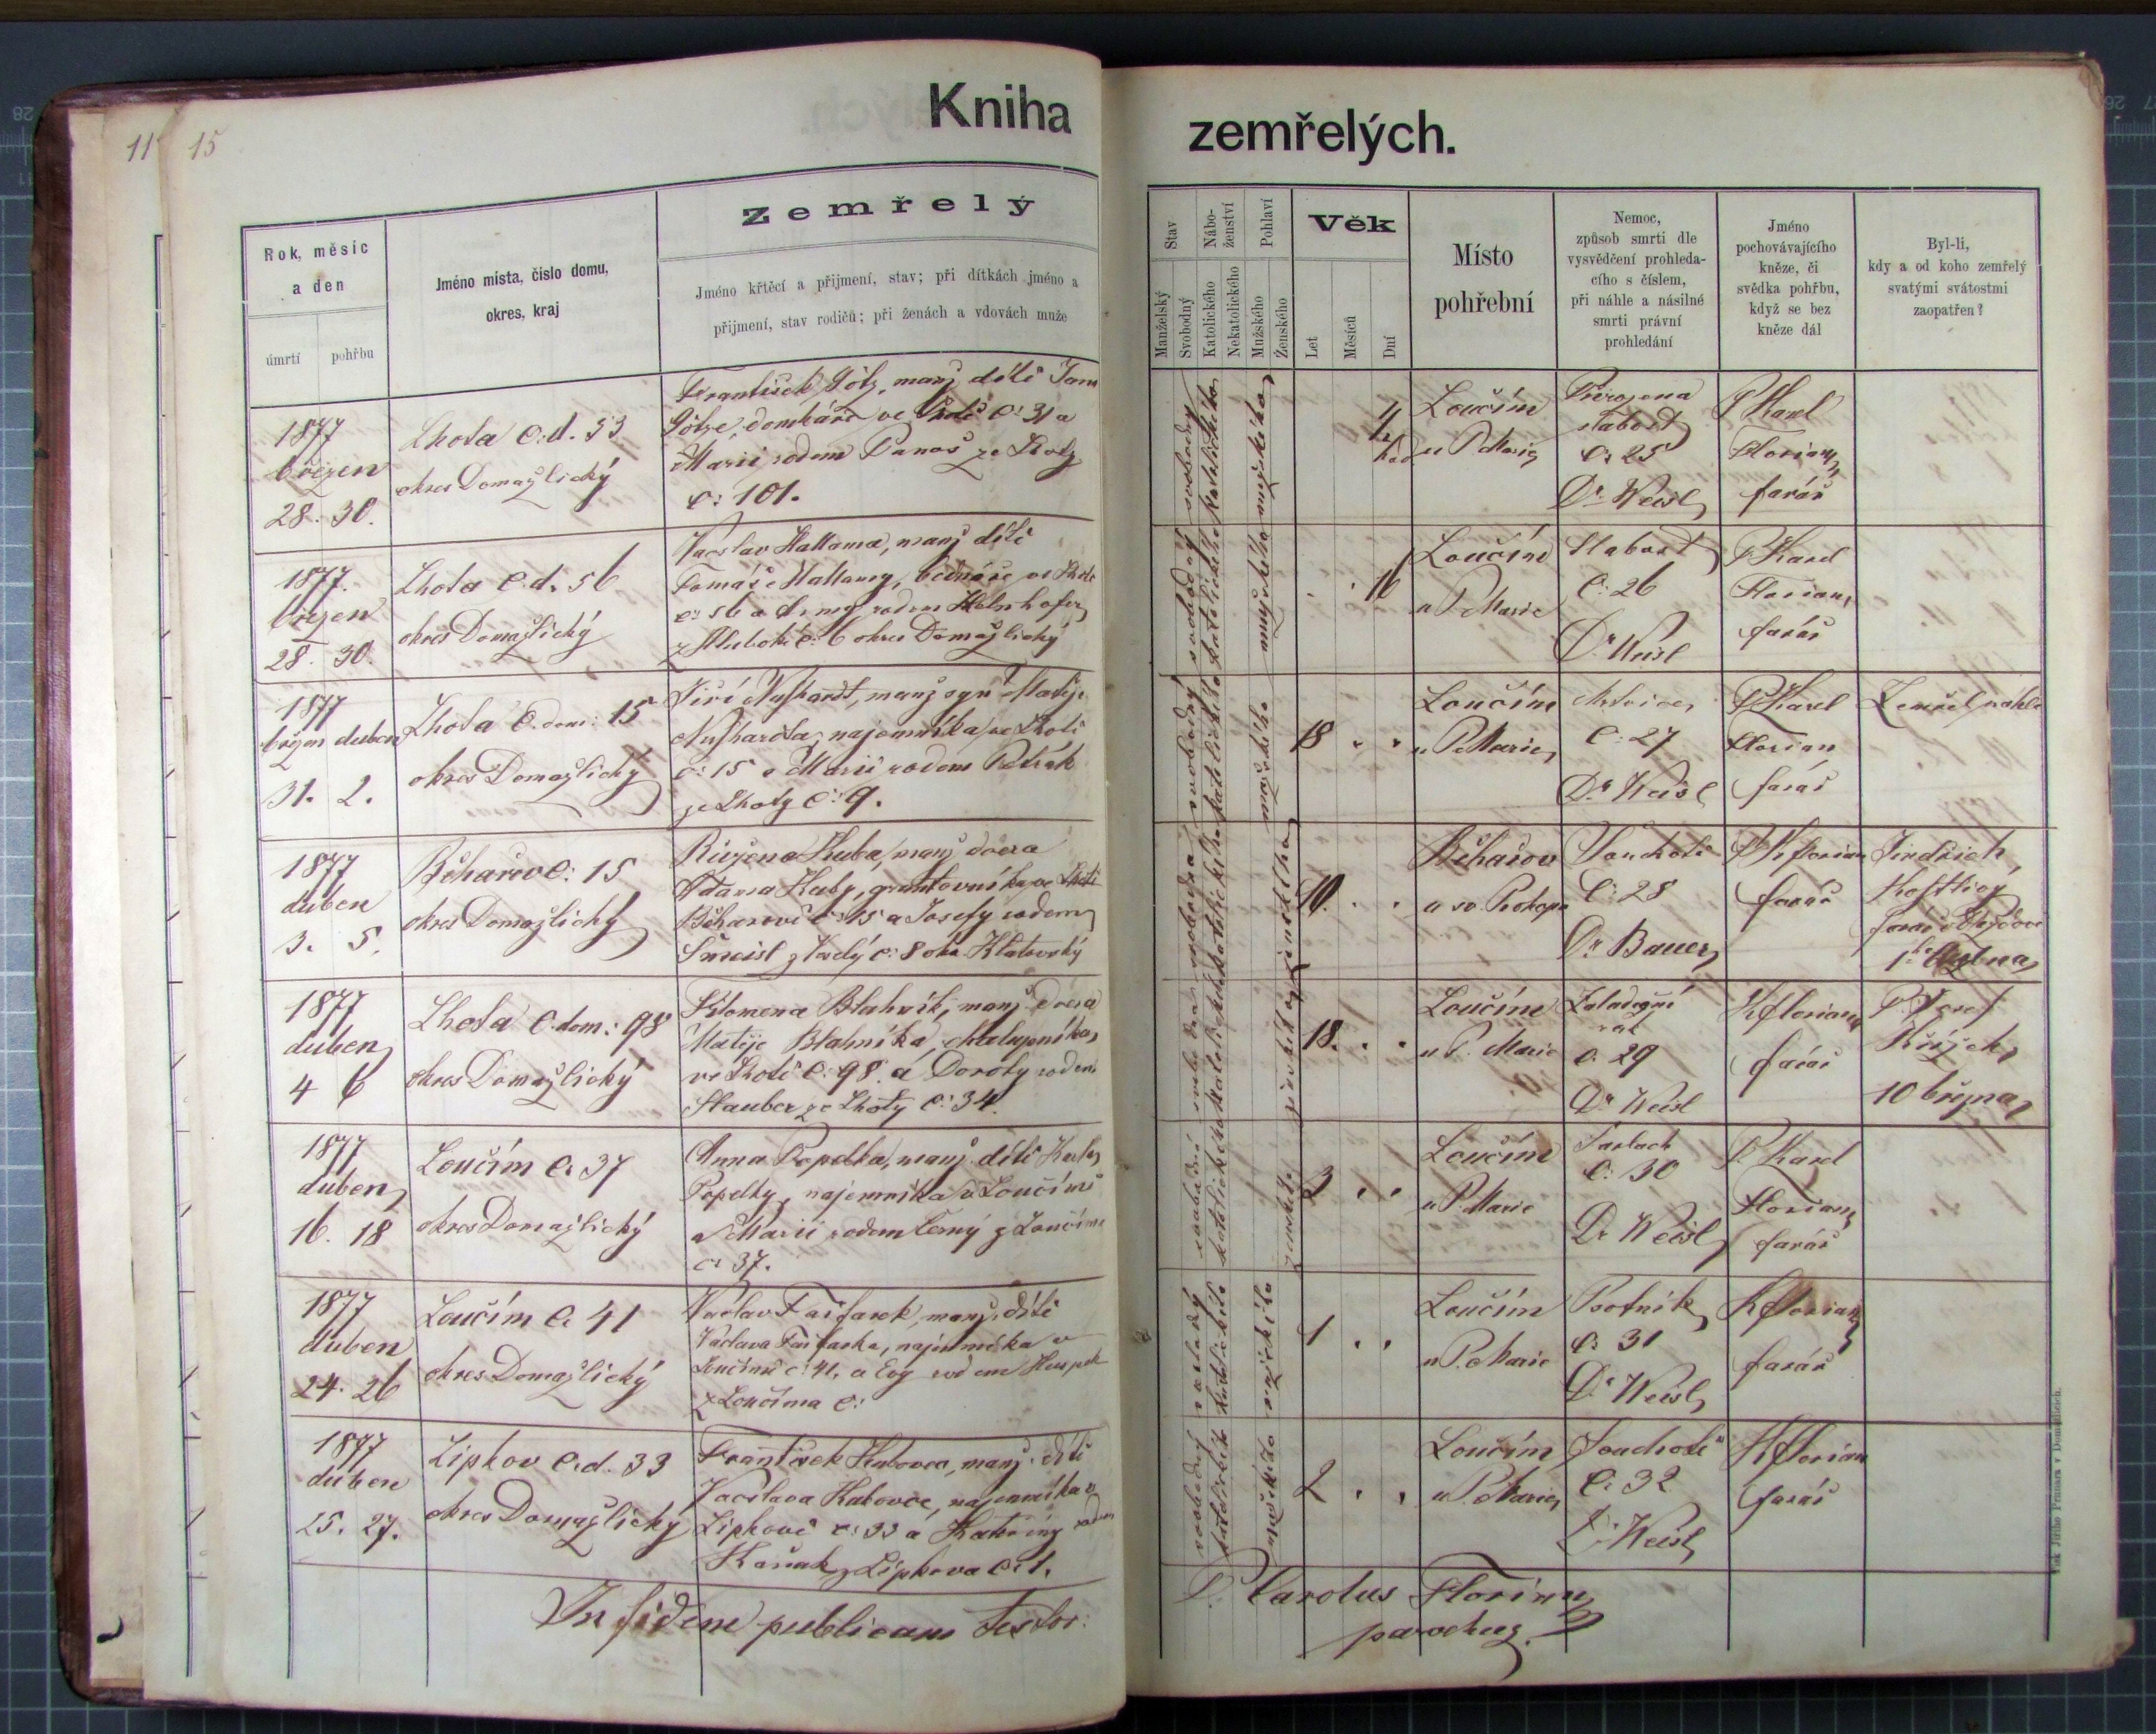 11 15
Kniha zemřelých.
Rok, měsíc
a den
úmrtí pohřbu
Jméno místa, číslo domu,
okres, kraj
Zemřelý
Jméno křtěcí a příjmení, stav; při dítkách jméno a
příjmení, stav rodičů; při ženách a vdovách muže
Stav
Manželský
Svobodný
Nábo-
ženství
Katolického
Nekatolického
Pohlaví
Mužského
Ženského
Věk
Let
Měsíců
Dní
Místo
pohřební
Nemoc,
způsob smrti dle
vysvědčení prohleda-
cího s číslem,
při náhle a násilné
smrti právní
prohledání
Jméno
pochovávajícího
kněze, či
svědka pohřbu,
když se bez
kněze dál
Byl-li,
kdy a od koho zemřelý
svatými svátostmi
zaopatřen?
1877
březen
28. 30.
Lhota č.d. 53
okres Domažlický
František Götz, manž dítě
Götze, domkáře ve Lhotě č: 31 a
Marii rodem Panoš ze Lhoty
č: 101.
svobodný
katolického
mužského
Loučím
u P. Marie
Přirozena
slabost
č: 25
Dr. Weisl
P. Karel
Florian,
farář
1877.
březen
28. 30.
Lhota č.d. 56
okres Domažlický
Vácslav Hallama, manž dítě
Tomáše Hallamy, bednáře ve Lhotě
č: 56 a Anny rodem
z Hluboké č: 6 okres Domažlický
svobodný
katolického
mužského
16
Loučím
u P. Marie
Slabost
č: 26
Dr. Weisl
P. Karel
Florian,
farář
1877
březen duben
31. 2.
Lhota č. dom: 15
okres Domažlický
Jiří manž syn Matěje
najemníka ve Lhotě
č: 15 a Marii rodem Petrák
ze Lhoty č: 9.
svobodný
katolického
mužského
18 . .
Loučím
u P. Marie
č: 27
Dr. Weisl
P. Karel
Florian
farář
Zemřel náhle
1877
duben
3. 5.
Běhařov č: 15
okres Domažlický
Růžena Huba, manž dcera
Adama Huby, gruntovníka
Běhařově č: 15 a Josefy rodem
č: 8 okr. Klatovský
svobodná
katolického
ženského
10. . .
Běhařov
u sv. Prokopa
Souchotě
č: 28
Dr. Bauer
P. K. Florian
farář
Jindřich
farář
1. dubna
1877
duben
4 6
Lhota č. dom: 98
okres Domažlický
Filomena Blahník, manž dcera
Matěje Blahníka, chalupníka
ve Lhotě č: 98. a Doroty rodem
Stauber ze Lhoty č: 34.
svobodná
katolického
ženského
18. . .
Loučím
u P. Marie
č. 29
Dr. Weisl
K. Florian
farář
P. Josef
Křížek
10 března
1877
duben
16. 18
Loučím č. 37
okres Domažlický
Anna Popelka, manž. dítě Karla
Popelky, najemníka v Loučímě
a Marii rodem Černý z Loučíma
č. 37.
svobodná
katolického
ženského
3 . .
Loučím
u P. Marie
Šarlach
č: 30
Dr. Weisl
P. Karel
Florian
farář
1877
duben
24. 26
Loučím č. 41
okres Domažlický
Václav Faifarek, manž. dítě
Václava Faifarka, najemníka v
Loučímě č: 41. a Evy rodem
z Loučíma č:
svobodný
katolického
mužského
1 . .
Loučím
u P. Marie
Psotník
č: 31
Dr. Weisl
K. Florian
farář
1877
duben
25. 27.
Lipkov č.d. 33
okres Domažlický
František Hubovec, manž. dítě
Vácslava Hubovce, najemníka v
Lipkově č: 33 a Kateřiny rodem
z Lipkova č. 1.
svobodný
katolického
mužského
2 . .
Loučím
u P. Marie
Souchotě
č. 32
Dr. Weisl
K. Florian
farář
In fidem publicam testor:
P. Carolus Florian
parochus.